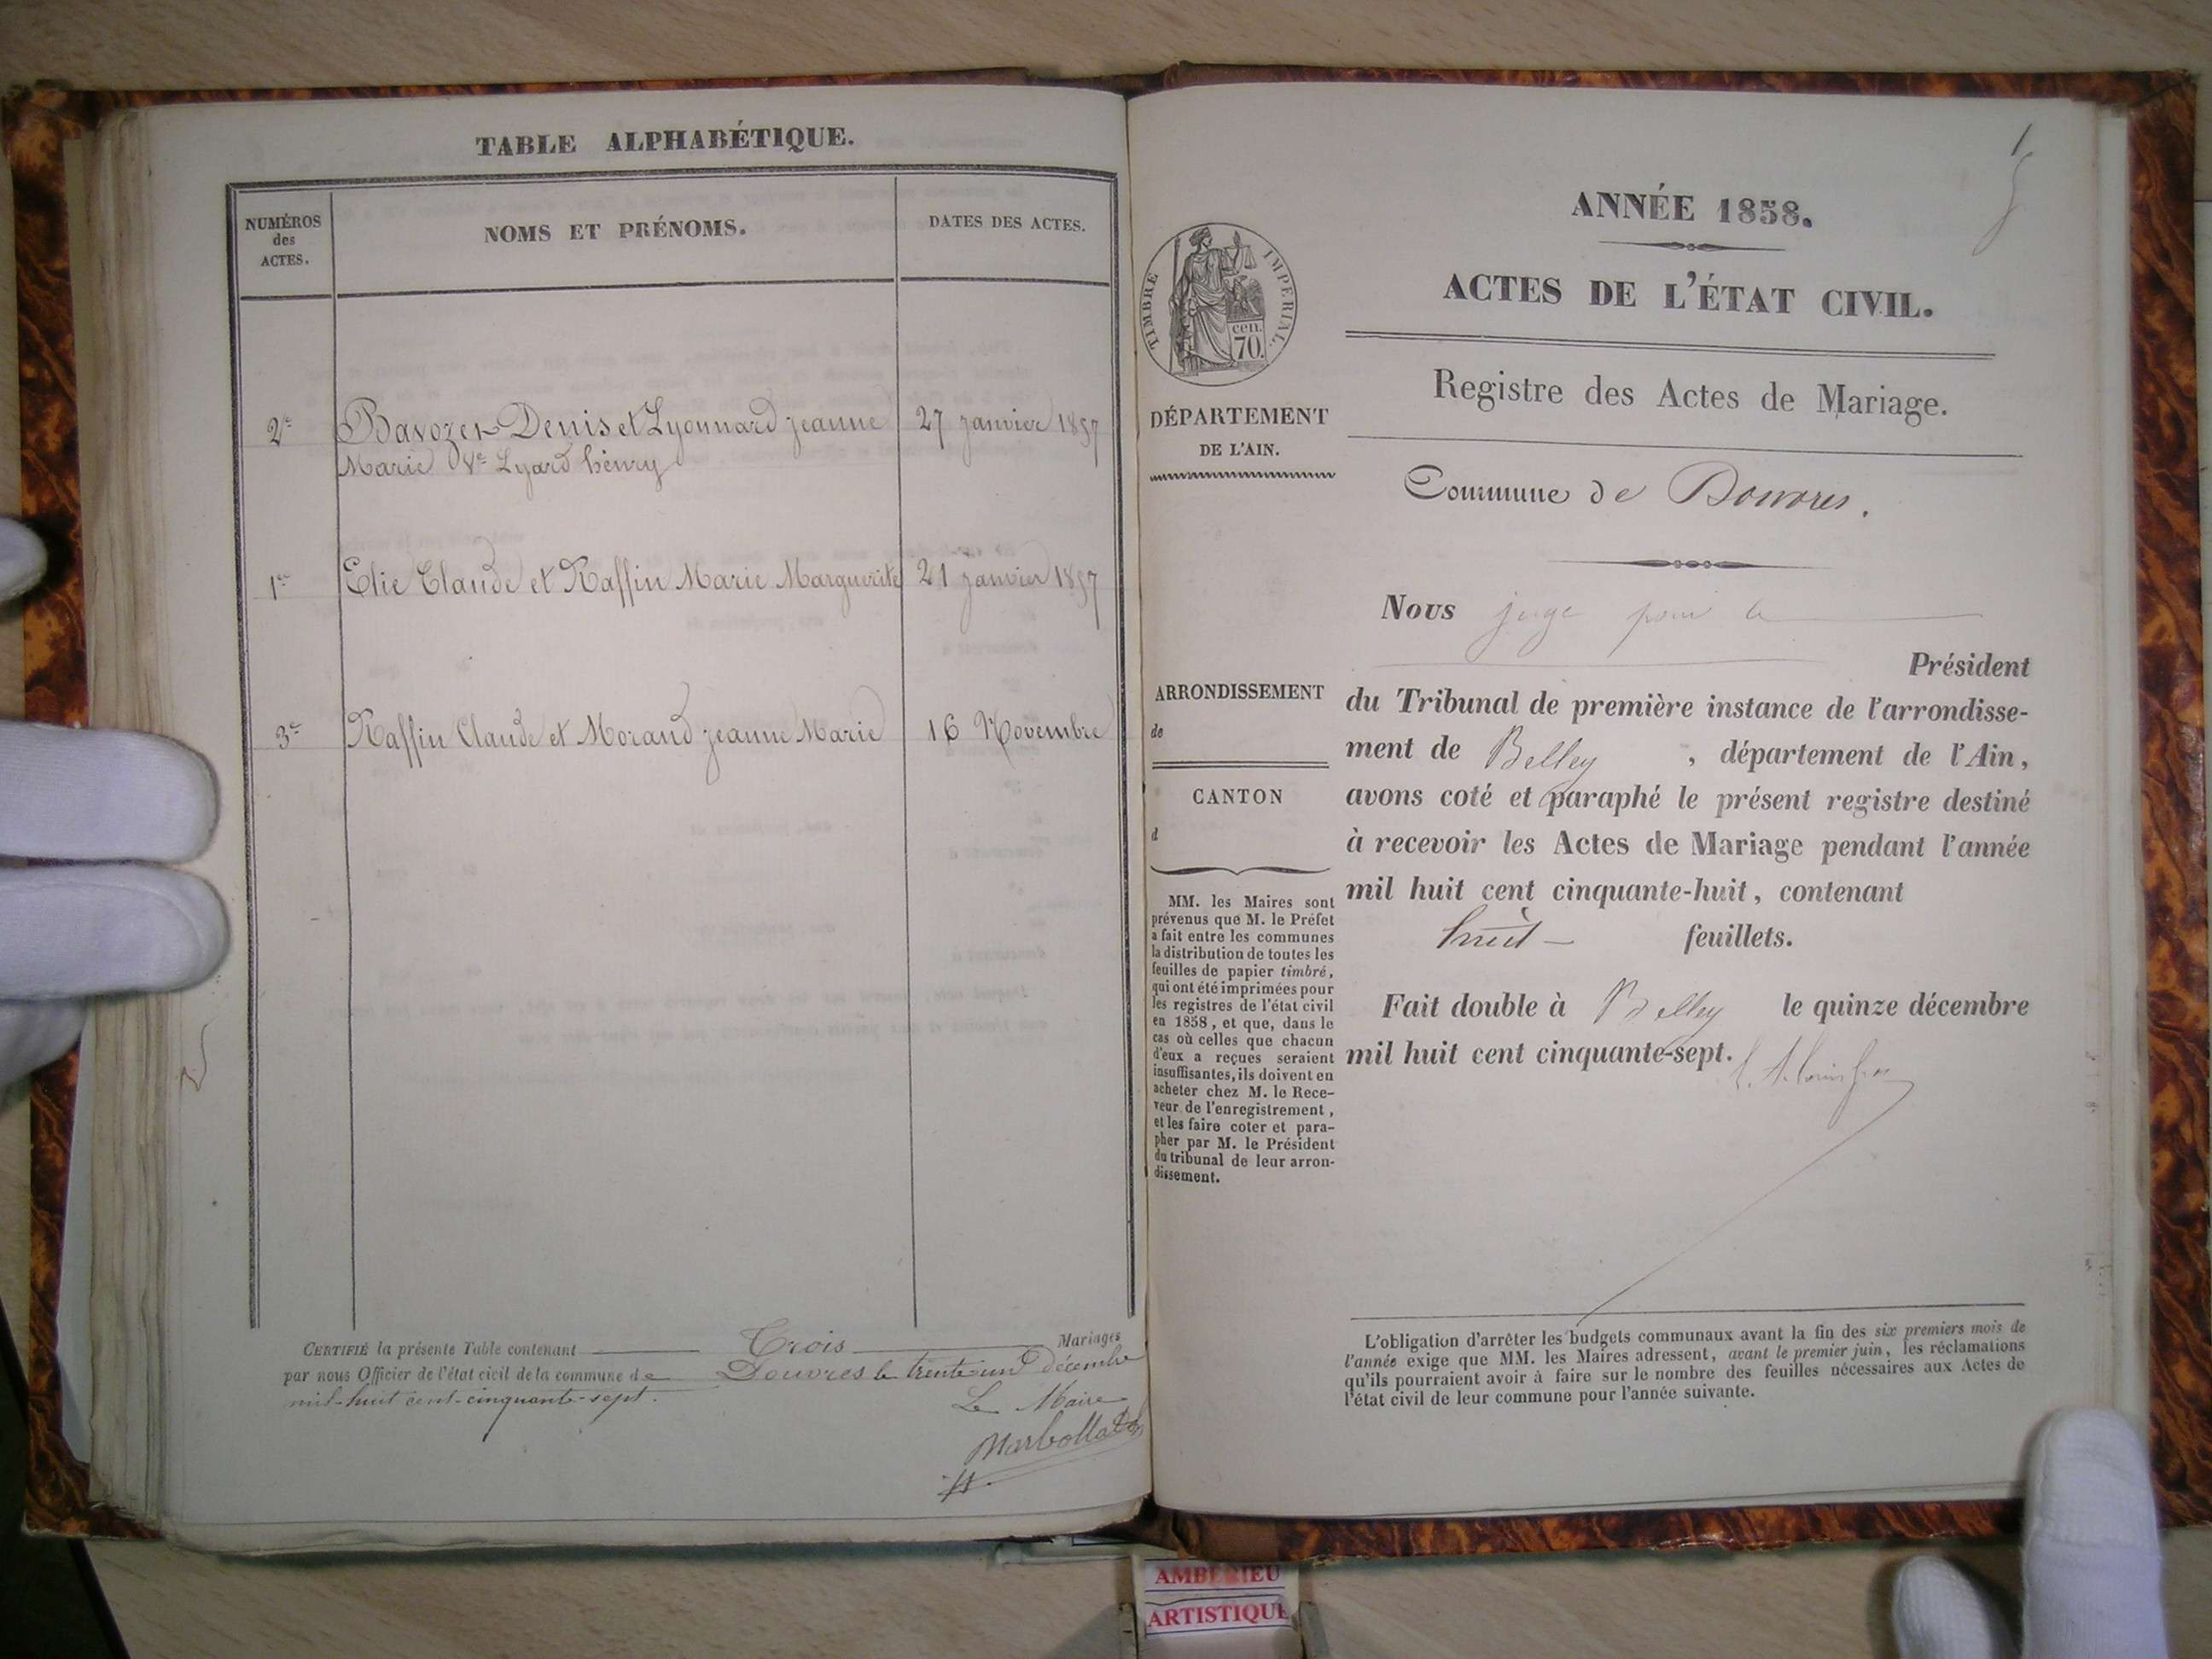 TABLE ALPHABÉTIQUE.
NUMÉROS
des
ACTES.
NOMS ET PRÉNOMS.
DATES DES ACTES.
2e Bavozet Denis et Lyonnard jeanne 27 janvier 1857
Marie Ve Lyard henry
1er Elie Claude et Raffin Marie Marguerite 21 janvier 1857
3e Raffin Claude et Morand jeanne Marie 16 Novembre
CERTIFIÉ la présente Table contenant Trois Mariages
par nous Officier de l'état civil de la commune de Douvres le trente un décembre
mil-huit cent-cinquante-sept.
Le Maire
1
ANNÉE 1858.
ACTES DE L'ÉTAT CIVIL.
Registre des Actes de Mariage.
TIMBRE IMPERIAL.
cen.
70.
DÉPARTEMENT
DE L'AIN.
Commune de Douvres.
Nous juge pour le
Président
du Tribunal de première instance de l'arrondisse-
ment de Belley, département de l'Ain,
avons coté et paraphé le présent registre destiné
à recevoir les Actes de Mariage pendant l'année
mil huit cent cinquante-huit, contenant
huit feuillets.
Fait double à Belley le quinze décembre
mil huit cent cinquante-sept.
ARRONDISSEMENT
de
CANTON
d
MM. les Maires sont
prévenus que M. le Préfet
a fait entre les communes
la distribution de toutes les
feuilles de papier timbré,
qui ont été imprimées pour
les registres de l'état civil
en 1858, et que, dans le
cas où celles que chacun
d'eux a reçues seraient
insuffisantes, ils doivent en
acheter chez M. le Rece-
veur de l'enregistrement,
et les faire coter et para-
pher par M. le Président
du tribunal de leur arron-
dissement.
L'obligation d'arrêter les budgets communaux avant la fin des six premiers mois de
l'année exige que MM. les Maires adressent, avant le premier juin, les réclamations
qu'ils pourraient avoir à faire sur le nombre des feuilles nécessaires aux Actes de
l'état civil de leur commune pour l'année suivante.
AMBERIEU
ARTISTIQUE